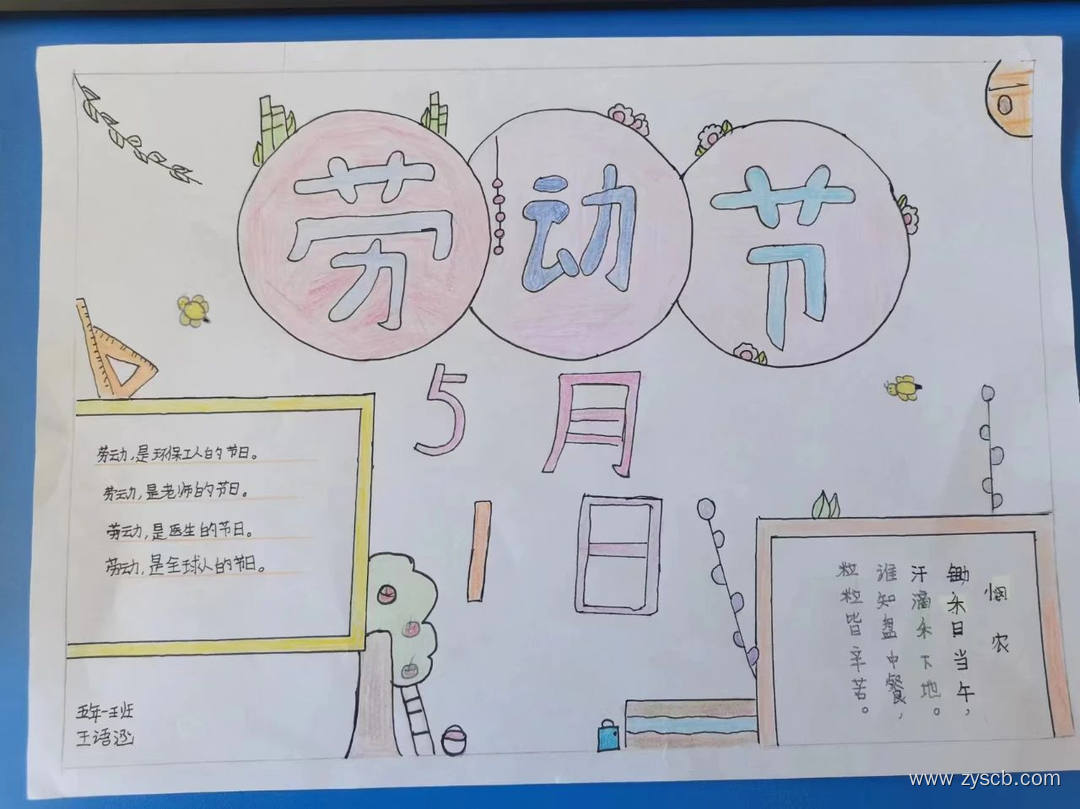 劳动节
5月
1日
劳动,是环保工人的节日。
劳动,是老师的节日。
劳动,是医生的节日。
劳动,是全球人的节日。
悯农
锄禾日当午,
汗滴禾下地。
谁知盘中餐,
粒粒皆辛苦。
五年一班
王语
www.zyscb.com